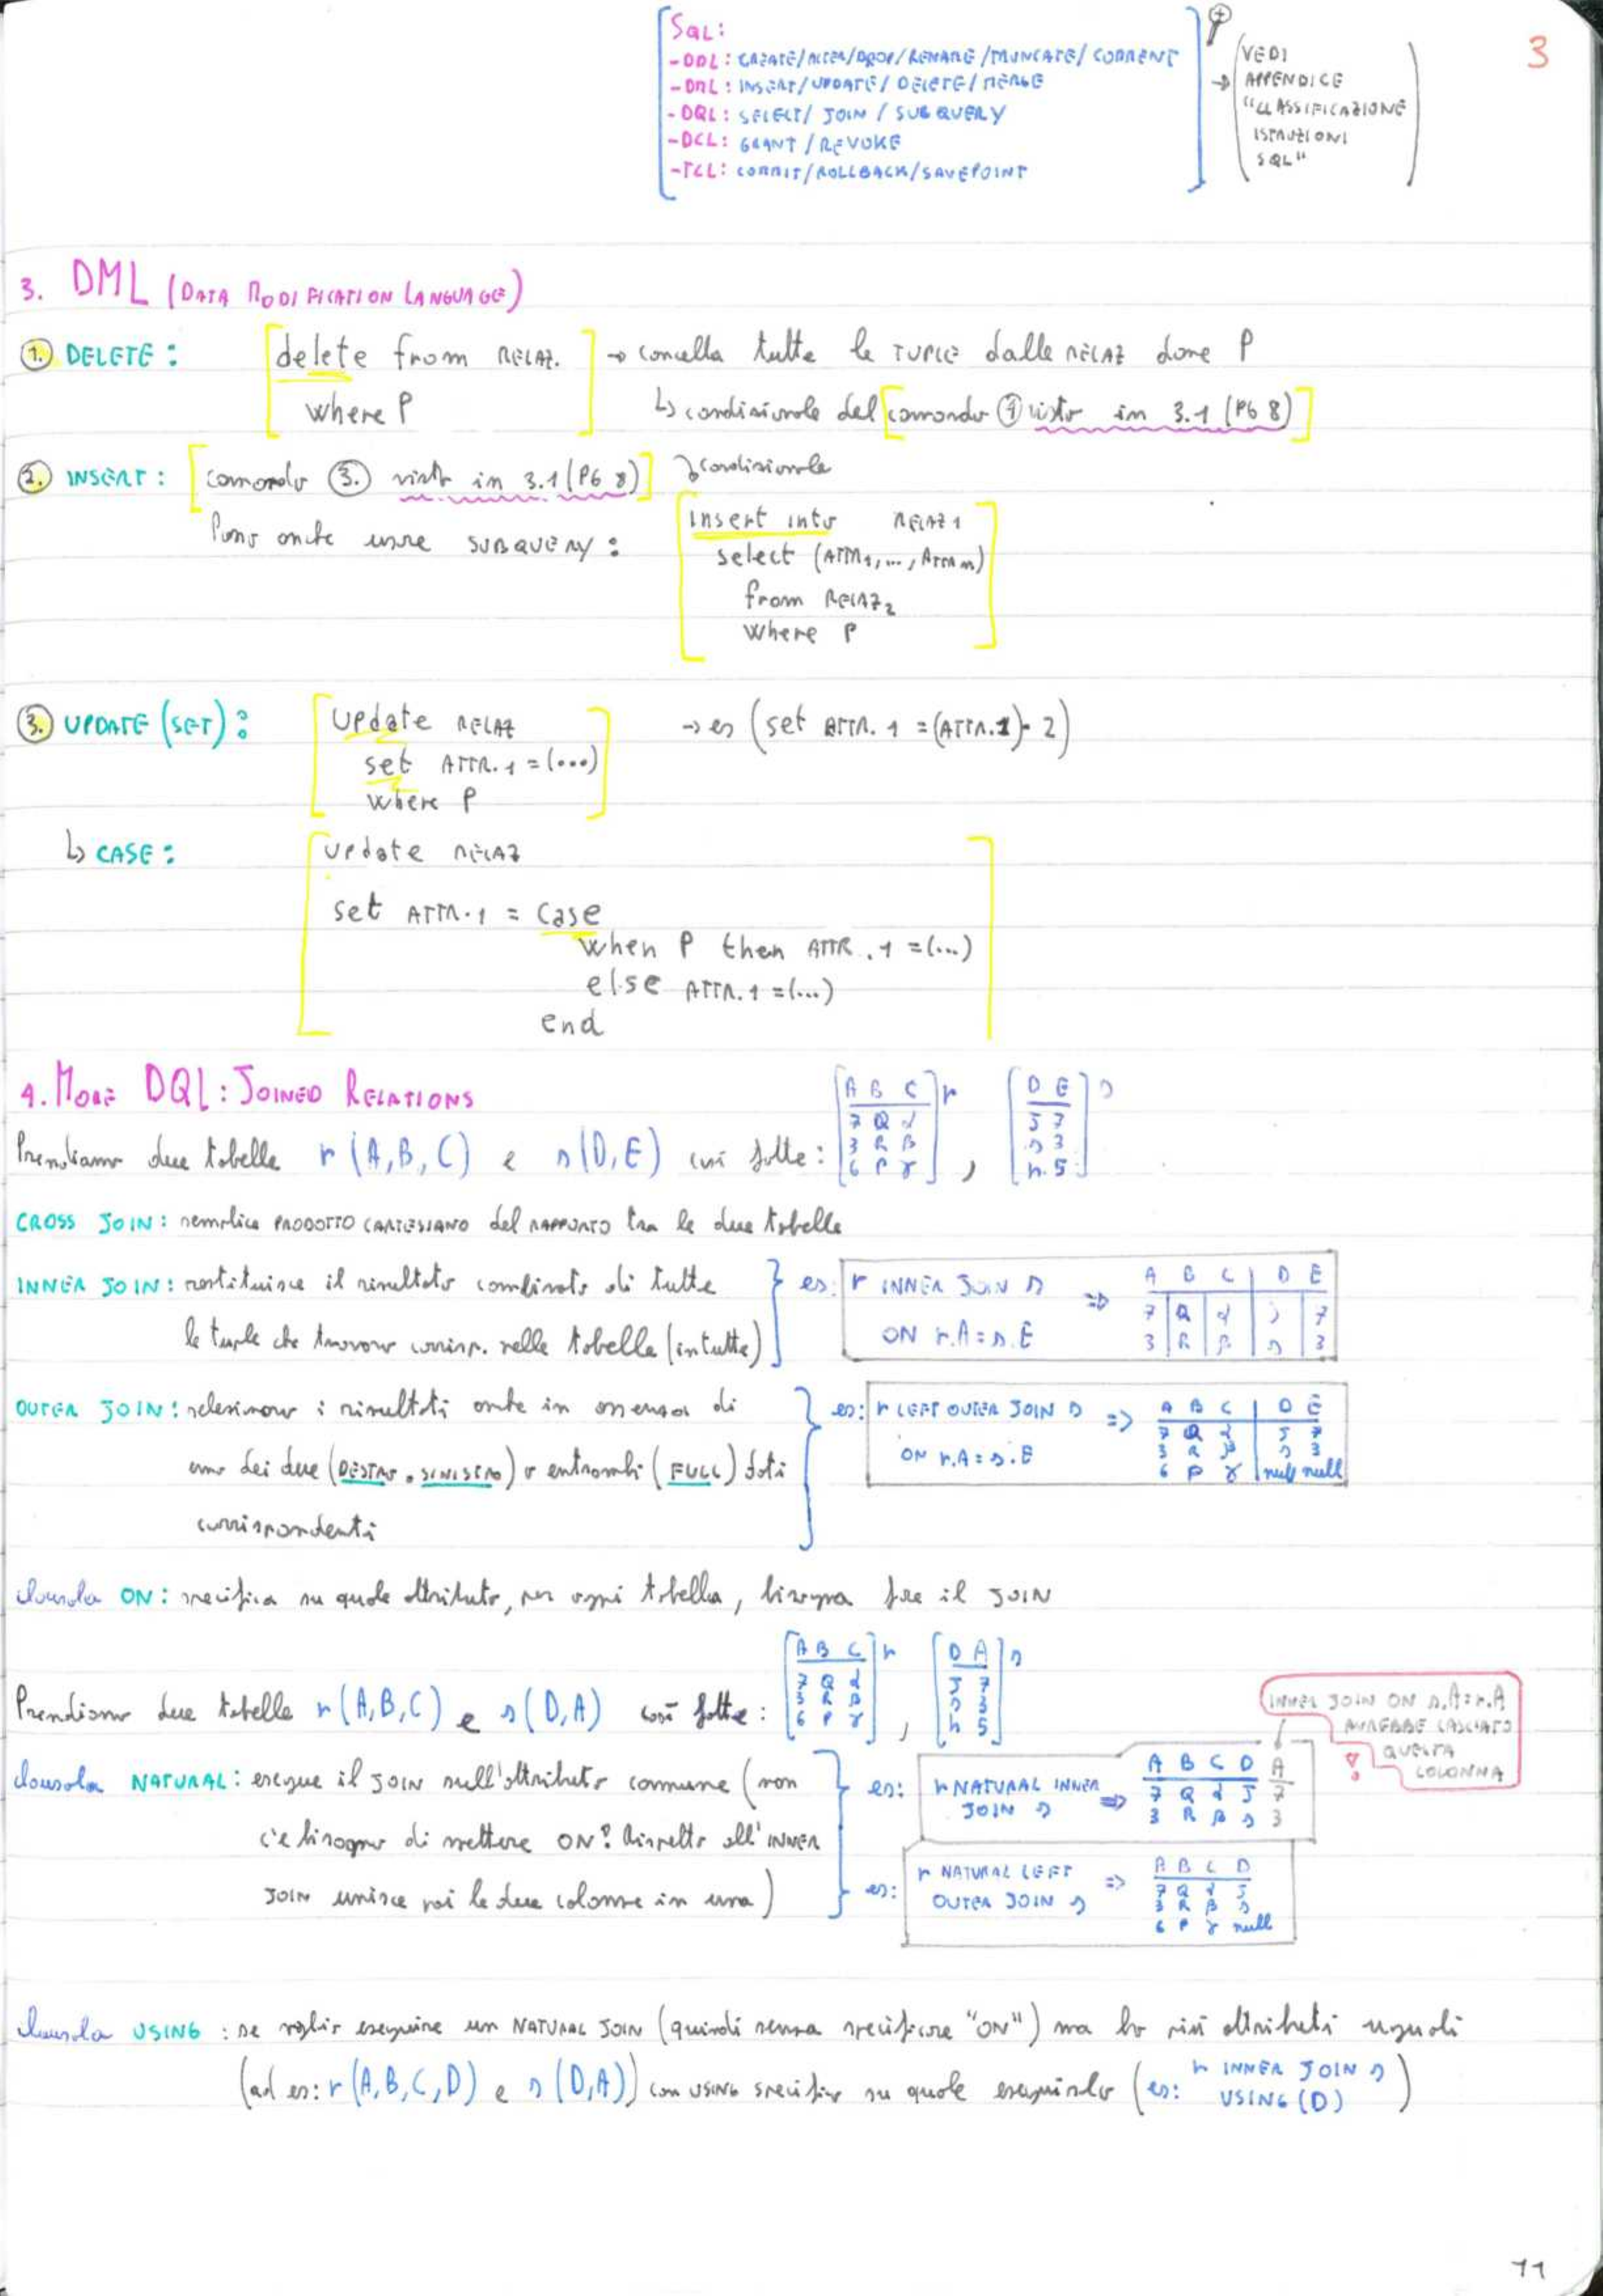 SQL:
-DDL: CREATE/ALTER/DROP/RENAME/TRUNCATE/COMMENT
-DML: INSERT/UPDATE/DELETE/MERGE
-DQL: SELECT/ JOIN / SUBQUERY
-DCL: GRANT / REVOKE
-TCL: COMMIT/ROLLBACK/SAVEPOINT
→ (VEDI
APPENDICE
"CLASSIFICAZIONE
ISTRUZIONI
SQL")
3
3. DML (DATA MODIFICATION LANGUAGE)
1. DELETE: [delete from RELAZ. → cancella tutte le TUPLE dalle RELAZ dove P
where P] ↳ condizionale del [comando ① visto in 3.1 (PG 8)]
2. INSERT: [comando ③. visto in 3.1 (PG 8)] condizionale
Posso anche usare SUBQUERY: [insert into RELAZ1
select (ATTR1, ..., ATTRn)
from RELAZ2
where P]
3. UPDATE (SET): [update RELAZ → es (set ATTR. 1 = (ATTR.1)· 2)
set ATTR.1 = (...)
where P]
↳ CASE: [update RELAZ
set ATTR.1 = case
when P then ATTR.1 = (...)
else ATTR.1 = (...)
end
4. MORE DQL: JOINED RELATIONS
Prendiamo due tabelle r (A,B,C) e s(D,E) così fatte: [A B C] r , [D E] s
7 Q α 5 7
3 R β s 3
6 P γ h 5
CROSS JOIN: semplice PRODOTTO CARTESIANO del RAPPORTO tra le due tabelle
INNER JOIN: restituisce il risultato combinato di tutte
le tuple che trovano corrisp. nelle tabella (in tutte)
es: r INNER JOIN s ⇒
ON r.A = s.E
A B C | D E
7 Q α 7
3 R β s 3
OUTER JOIN: selezionano i risultati anche in assenza di
uno dei due (DESTRO o SINISTRO) o entrambi (FULL) dati
corrispondenti
es: r LEFT OUTER JOIN s ⇒
ON r.A = s.E
A B C | D E
7 Q α 5 7
3 R β s 3
6 P γ null null
clausola ON: specifica su quale attributo, per ogni tabella, bisogna fare il JOIN
Prendiamo due tabelle r (A,B,C) e s (D,A) così fatte: [A B C] r , [D A] s
7 Q α 5 7
3 R β s 3
6 P γ h 5
INNER JOIN ON s.A = r.A
AVREBBE LASCIATO
QUESTA
COLONNA
clausola NATURAL: esegue il JOIN sull'attributo comune (non
c'è bisogno di mettere ON! Rispetto all'INNER
JOIN unisce poi le due colonne in una)
es: r NATURAL INNER ⇒
JOIN s
A B C D A
7 Q α 5 7
3 R β s 3
es: r NATURAL LEFT ⇒
OUTER JOIN s
A B C D
7 Q α 5
3 R β s
6 P γ null
clausola USING: se voglio eseguire un NATURAL JOIN (quindi senza specificare "ON") ma ho più attributi uguali
(ad es: r (A,B,C,D) e s (D,A)) con USING specifico su quale eseguirlo (es: r INNER JOIN s
USING (D))
11